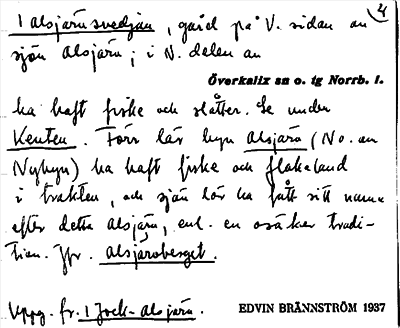 4
1 alsjärnsvedjan, gård på V. sidan av
sjön alsjärn; i N. delen av
Överkalix sn o. tg Norrb. l.
ha haft fiske och slåtter. Se under
Kenten. Förr lär byn Alsjärn (No. om
Nybyn) ha haft fiske och flakaland
i trakten, och sjön lär ha fått sitt namn
efter detta Alsjärn, enl. en osäker tradi-
tion. Jfr. alsjärvsberget.
Uppg. fr. 1 Jock-alsjärn.
EDVIN BRÄNNSTRÖM 1937